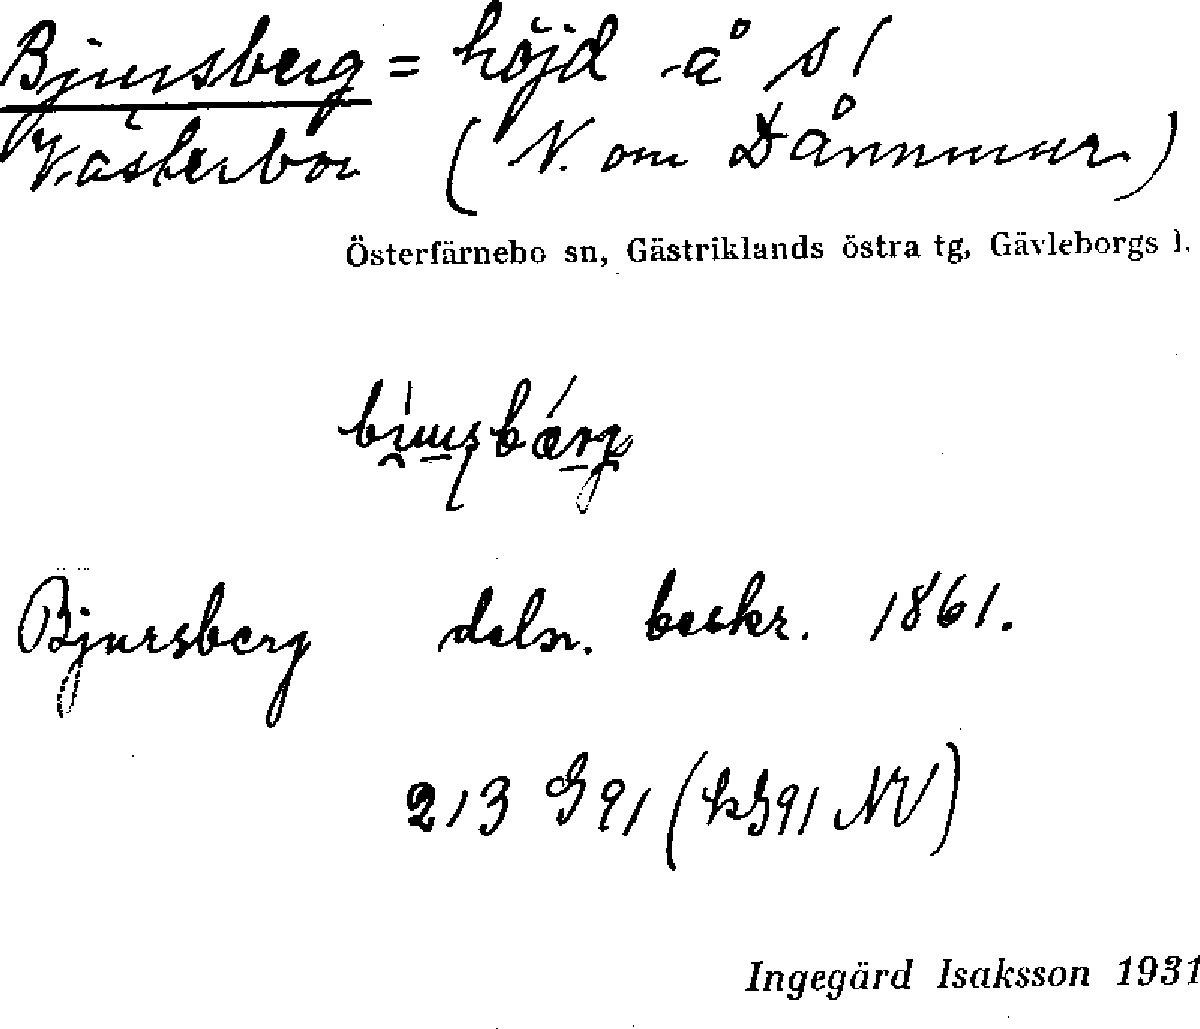 Bjursberg = höjd å s!
Västerbor (N. om Dånnmur)
Österfärnebo sn, Gästriklands östra tg, Gävleborgs l.
Bjursberg delsn. beskr. 1861.
213 G 91 (kG91 NV)
Ingegärd Isaksson 1931